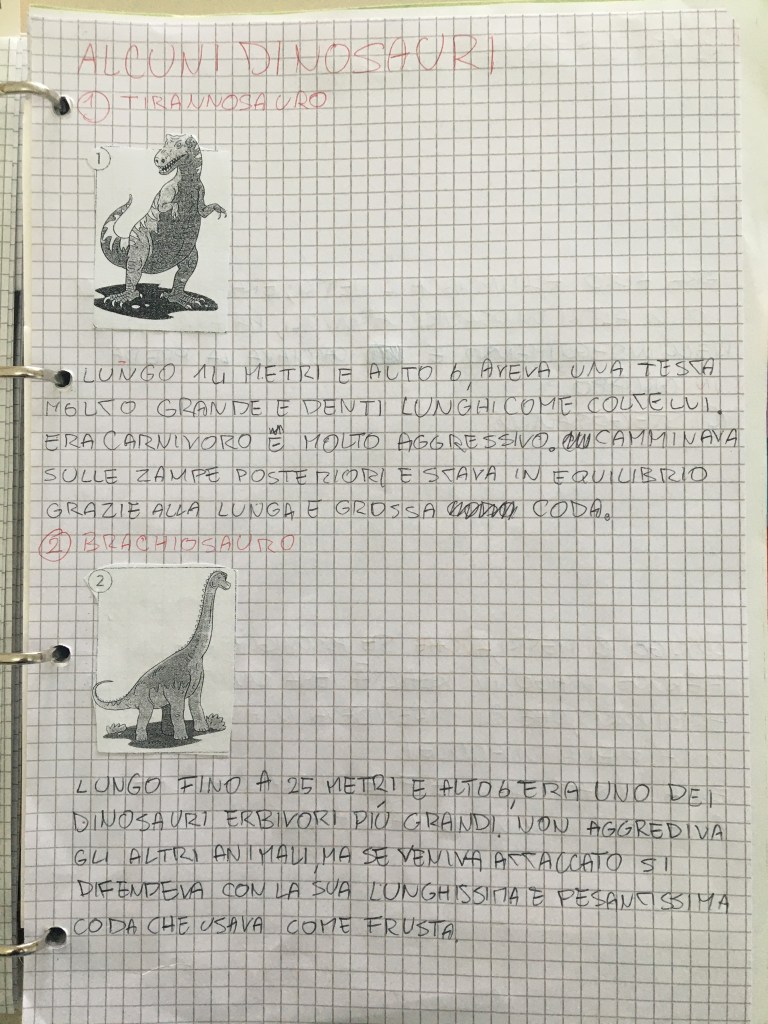 ALCUNI DINOSAURI
1 TIRANNOSAURO
1
LUNGO 14 METRI E ALTO 6, AVEVA UNA TESTA
MOLTO GRANDE E DENTI LUNGHI COME COLTELLI.
ERA CARNIVORO E MOLTO AGGRESSIVO. CAMMINAVA
SULLE ZAMPE POSTERIORI E STAVA IN EQUILIBRIO
GRAZIE ALLA LUNGA E GROSSA CODA.
2 BRACHIOSAURO
2
LUNGO FINO A 25 METRI E ALTO 6, ERA UNO DEI
DINOSAURI ERBIVORI PIÚ GRANDI. NON AGGREDIVA
GLI ALTRI ANIMALI, MA SE VENIVA ATTACCATO SI
DIFENDEVA CON LA SUA LUNGHISSIMA E PESANTISSIMA
CODA CHE USAVA COME FRUSTA.